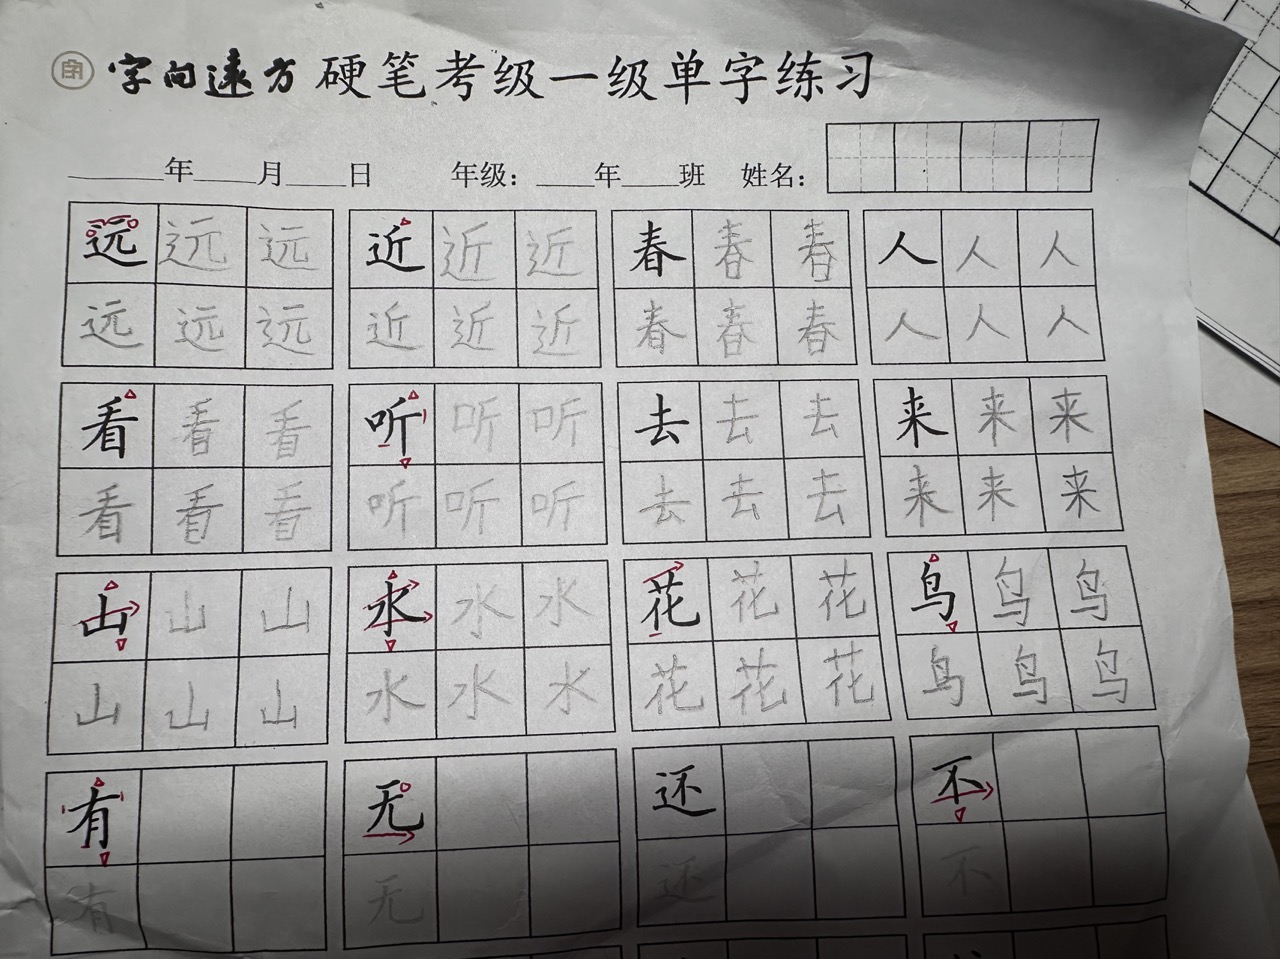 字 字向远方 硬笔考级一级单字练习
年 月 日 年级： 年 班 姓名：
远 远 远 近 近 近 春 春 春 人 人 人
远 远 远 近 近 近 春 春 春 人 人 人
看 看 看 听 听 听 去 去 去 来 来 来
看 看 看 听 听 听 去 去 去 来 来 来
山 山 山 水 水 水 花 花 花 鸟 鸟 鸟
山 山 山 水 水 水 花 花 花 鸟 鸟 鸟
有 无 还 不
有 无 还 不